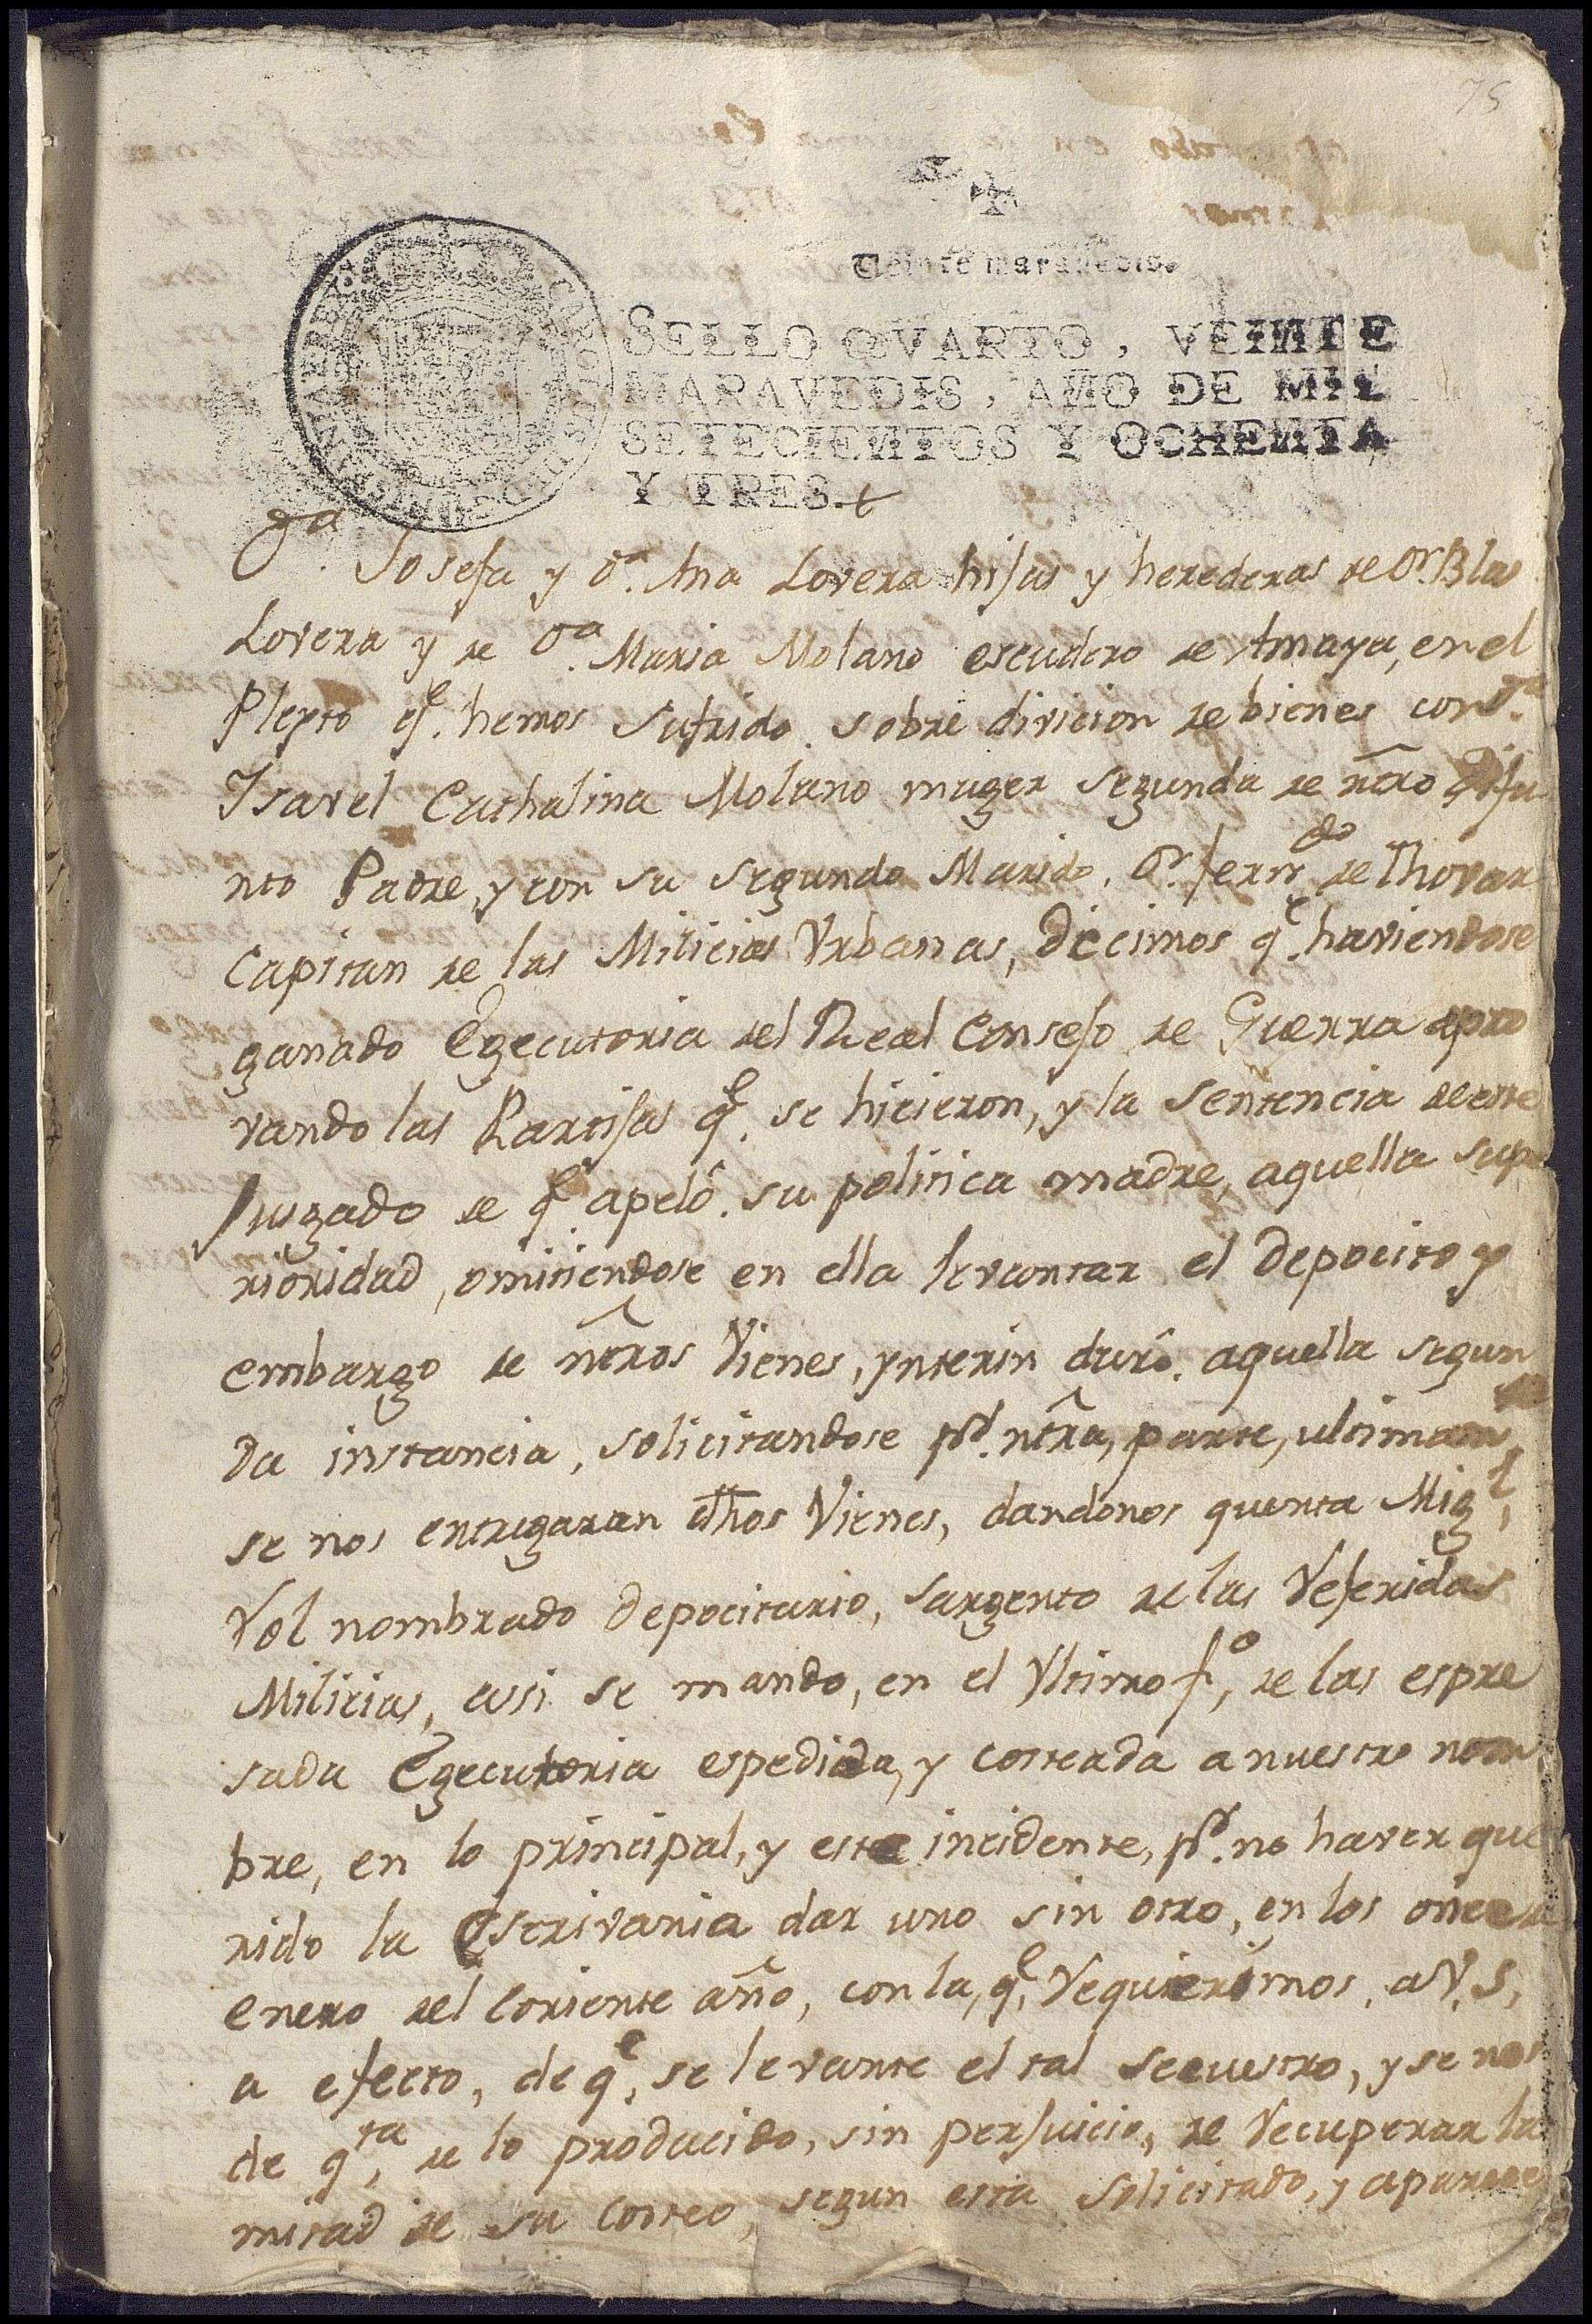 75
Veinte maravedis.
SELLO QVARTO, VEINTE
MARAVEDIS, AÑO DE MIL
SETECIENTOS Y OCHENTA
Y TRES.
Da. Josefa y Da. Ana Lovera hijas y herederas de Dn. Blas
Lovera y de Da. Maria Molano escudero de Amaya, en el
Pleyto qe. hemos sufrido sobre divicion de bienes con Da.
Isavel Cathalina Molano muger segunda de ntro difu
nto Padre, y con su segundo Marido, Dn. Ferndo de Thovar
Capitan de las Milicias Vrbanas, decimos qe. haviendose
ganado Egecutoria del Real Consejo de Guerra apro
vando las Partijas qe. se hicieron, y la sentencia de este
Juzgado de qe. apelô su politica madre, aquella supe
rioridad, omitiendose en ella levantar el depocito y
embargo de ntros Vienes, ynterin durô aquella segun
da instancia, solicitandose pr. ntra, parte, ultimamte
se nos entregaran dhos Vienes, dandonos quenta Migl,
Vol nombrado depocitario, sargento de las Referidas
Milicias, asi se mando, en el Vltimo fo, de las espre
sada Egecutoria espedida, y costeada a nuestro nom
bre, en lo principal, y este incidente, pr. no haver que
rido la Escrivania dar uno sin otro, en los once de
enero del Coriente año, con la, qe, Requierimos, a V, S,
a efecto, de qe, se levante el tal secuestro, y se nos
de qta, de lo producido, sin perjuicio, de Recuperar la
mitad de su Costeo, segun esta solicitado, y aparece